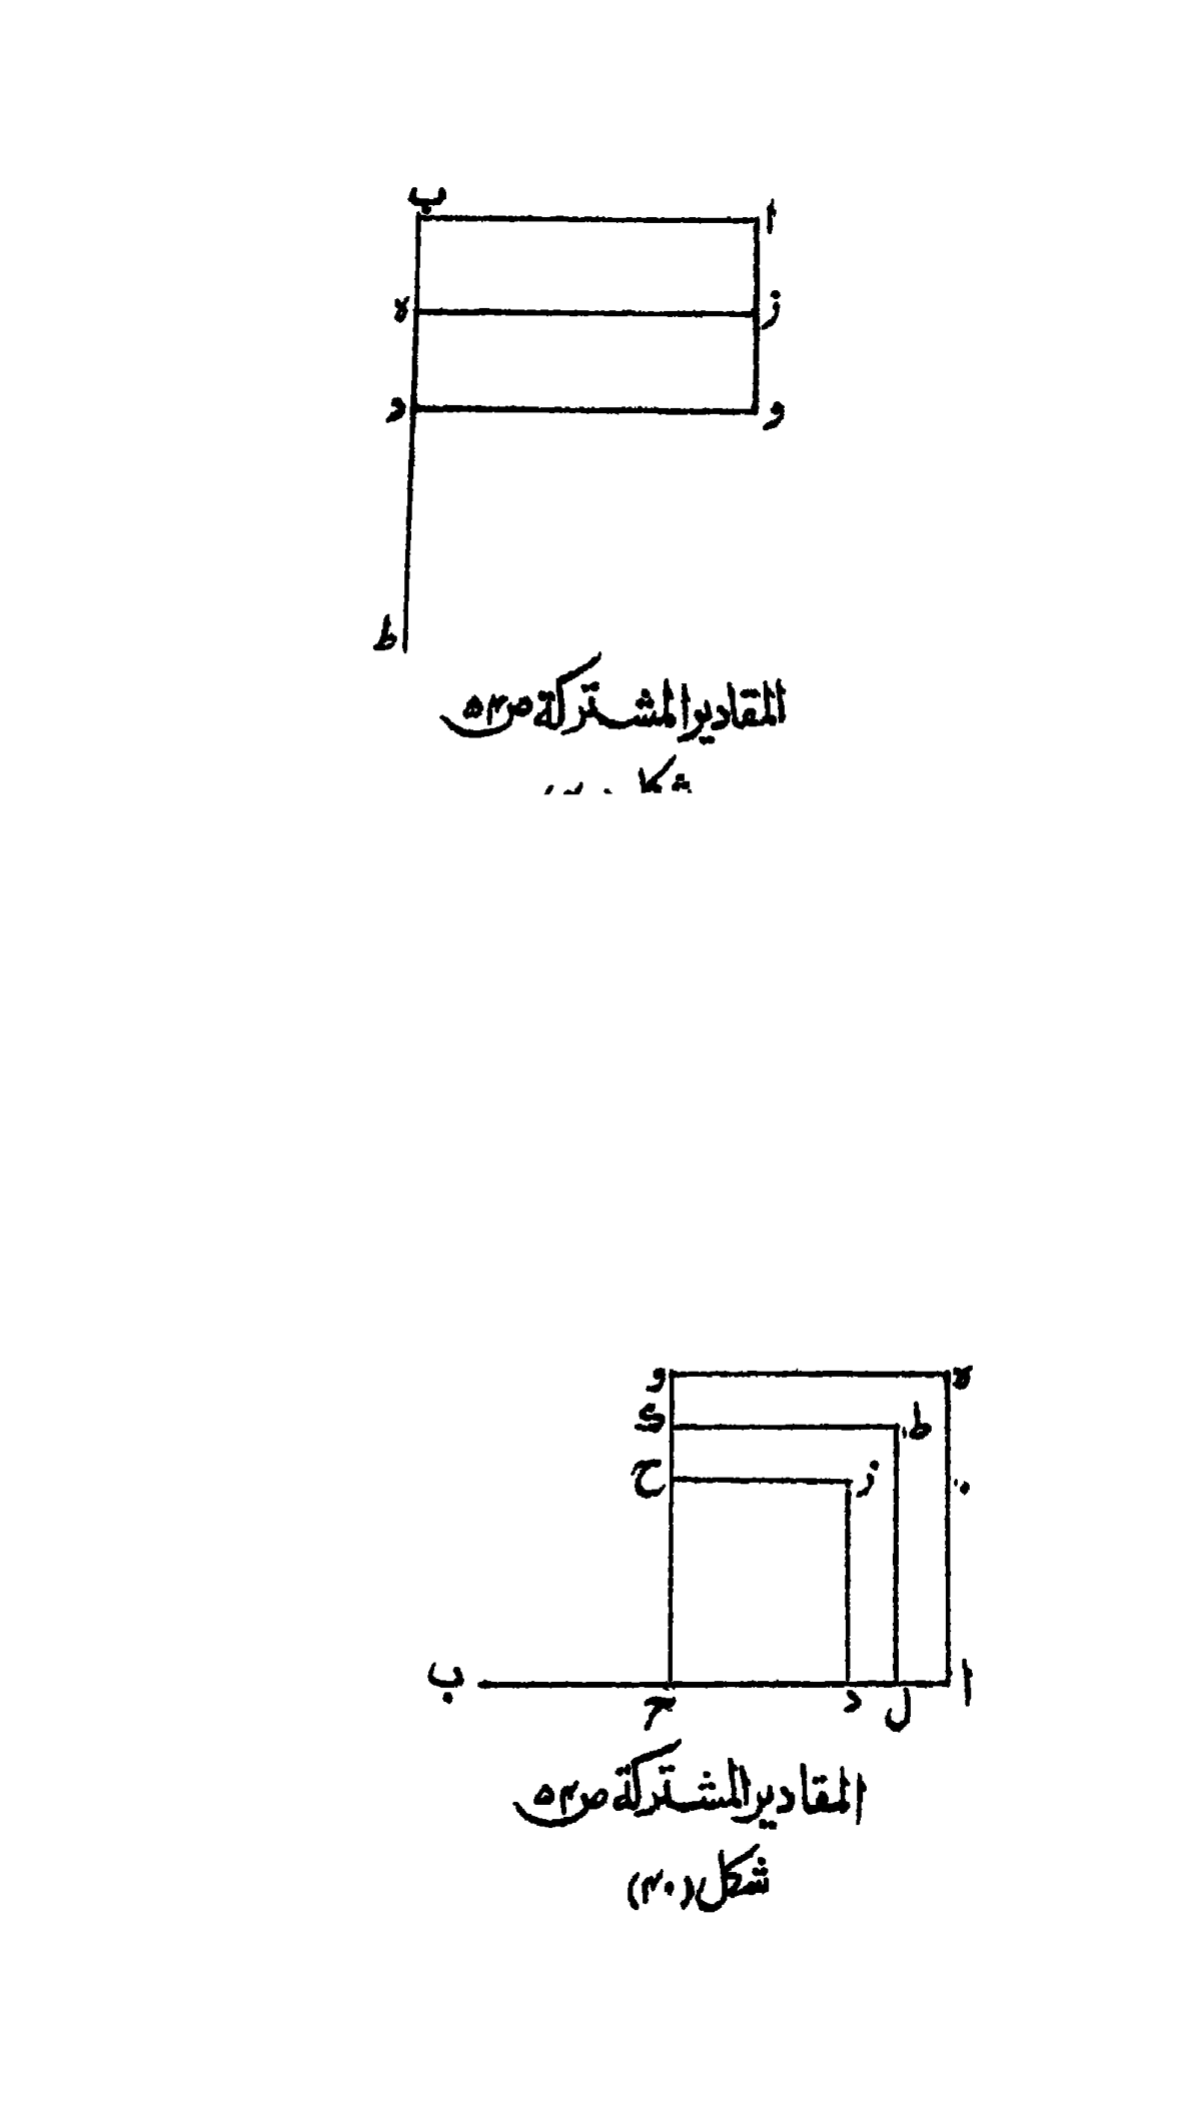 ب ا
ه ز
د و
ط
المقادير المشتركة ص۵۴
شكل
و ه
ى ط
ح ز
ب ج د ل ا
المقادير المشتركة ص۵۴
شكل (۴۰)